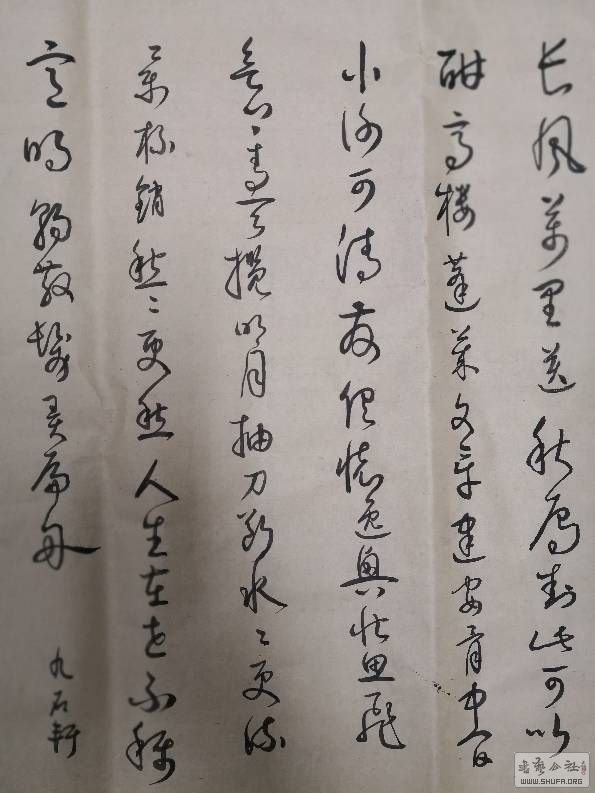 长风萬里送秋雁对此可以
酣高楼蓬莱文章建安骨中间
小谢可清发俱怀逸兴壮思飞
青天揽明月抽刀断水々更流
举杯销愁々更愁人生在世不称
意明朝散发弄扁舟
九石轩
书艺公社
WWW.SHUFA.ORG